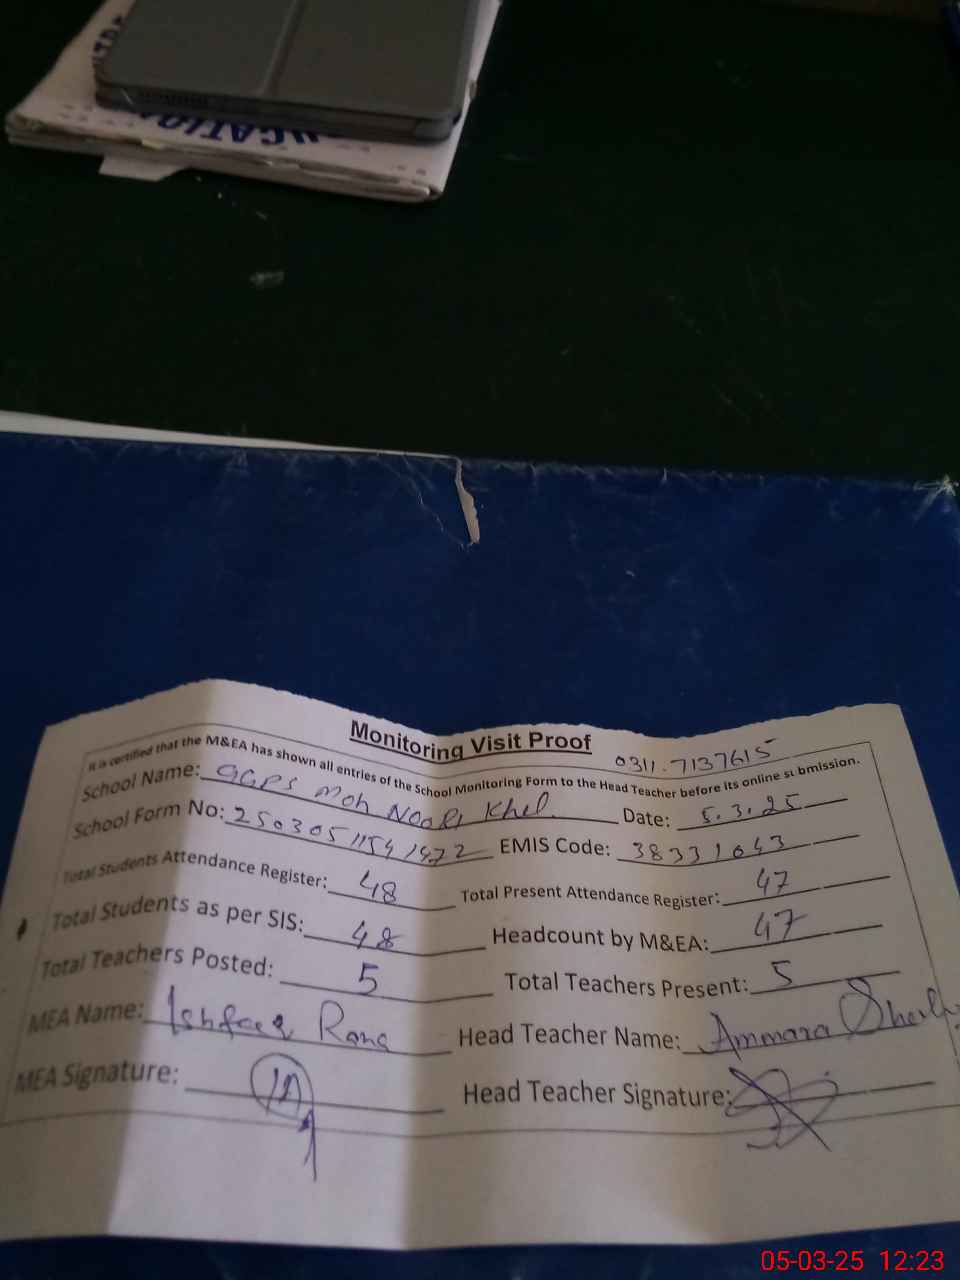 UCATION
Monitoring Visit Proof
0311.7137615
It is certified that the M&EA has shown all entries of the School Monitoring Form to the Head Teacher before its online submission.
School Name: GGPS Moh Noori Khel Date: 5.3.25
School Form No: 25030511541472 EMIS Code: 38331043
Total Students Attendance Register: 48 Total Present Attendance Register: 47
Total Students as per SIS: 48 Headcount by M&EA: 47
Total Teachers Posted: 5 Total Teachers Present: 5
MEA Name: Rana Head Teacher Name: Ammara
MEA Signature: Head Teacher Signature:
05-03-25 12:23